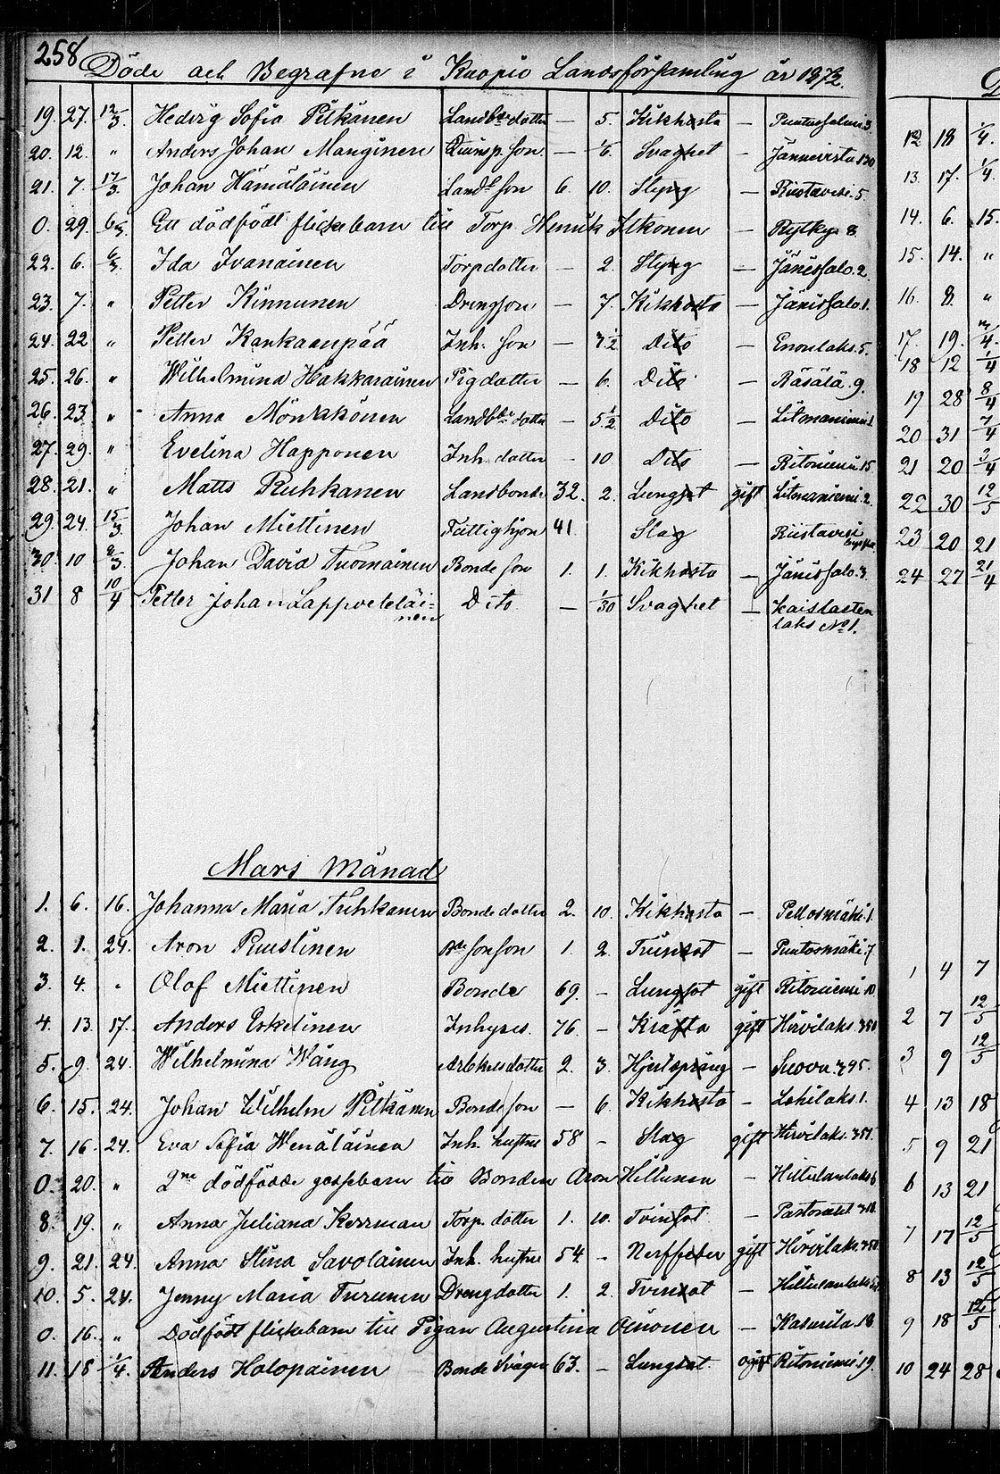 258
Döde och Begrafne i Kuopio Landsförsamling år 1872.
19. 27. 12/3. Hedvig Sofia Pitkänen Landbdr dotter — 5. Kikhosta — Puutossalmi 3.
20. 12. " Anders Johan Manginen Son. — Svaghet — Jännevirta
21. 7. 17/3. Johan Hämäläinen Landb Son 6. 10. Slag — Riistavesi. 5.
0. 29. Ett dödfödt flickebarn till Torp. Henrik Itkonen — Rytky 8
22. 6. 6/3. Ida Ivanainen Torpdotter — 2. Slag — Jänissalo. 2.
23. 7. " Petter Kinnunen Drengson — 7. Kikhosta — Jänissalo. 1.
24. 22 " Petter Kankaanpää Inh. Son — 7 1/2 Dito — Enonlaks. 5.
25. 26. " Wilhelmina Hakkarainen Pigdotter — 6. Dito — Räsälä. 9.
26. 23. " Anna Mönkkönen Landbdr dotter — 5 1/2 Dito — Litmaniemi
27. 29. " Evelina Happonen Inh dotter — 10 Dito — Ritoniemi 15.
28. 21. " Matts Ruhkanen Landbonde 32. 2. Lungsot gift Litmaniemi 2.
29. 24. 15/3 Johan Miettinen Fattighjon 41. Slag Riistavesi
30. 10 2/3. Johan David Tuomainen Bonde son 1. 1. Kikhosta — Jänissalo. 3.
31 8 10/4 Petter Johan Lappveteläi=
nen Dito — 1/30 Svaghet — Kaislasten
laks No 1.
Mars Månad
1. 6. 16. Johanna Maria Tuhkanen Bonde dotter 2. 10. Kikhosta — Pellosmäki. 1
2. 1. 24. Aron Puustinen sonson 1. 2. Tvinsot — Puutosmäki. 7
3. 4. " Olof Miettinen Bonde 69. — Lungsot gift Ritoniemi
4. 13. 17. Anders Eskelinen Inhyses. 76. — Kräfta gift Hirvilaks.
5. 9. 24. Wilhelmina Wäng dotter 2. 3. Hjertsprång — Suovu 395.
6. 15. 24. Johan Wilhelm Pitkänen Bonde son — 6. Kikhosta — Lohilaks 1.
7. 16. 24. Eva Sofia Wenäläinen Inh. hustru 58 — Slag gift Hirvilaks. 357.
0. 20. " 2ne dödfödde gossebarn till Bonden Aron Hiltunen — Hiltulanlaks 6
8. 19. " Anna Juliana Korrman Torp. dotter 1. 10. Tvinsot — Pastorat
9. 21. 24. Anna Stina Savolainen Inh. hustru 54 — Nerffeber gift Hirvilaks
10. 5. 24. Jenny Maria Turunen Drengdotter 1. 2. Tvinsot — Hiltulanlaks
0. 16. " Dödfödt flickebarn till Pigan Augustina Oinonen — Kasurila 18
11. 18 1/4. Anders Holopainen Bonde Svåger 63. — Lungsot ogift Ritoniemi 19.
12 18 1/4.
13. 17. 1/4.
14. 6. 15.
15. 14. "
16. 8. "
17. 19.
18 12 1/4
19 28 8/4
20 31 7/4
21 20 3/4
22 30 12/5
23 20 21
24 27 21/4
1 4 7
2 7 12/5
3 9 12/5
4 13 18
5 9 21
6 13 21
7 17 12/5
8 13 12/5
9 18 12/5
10 24 28